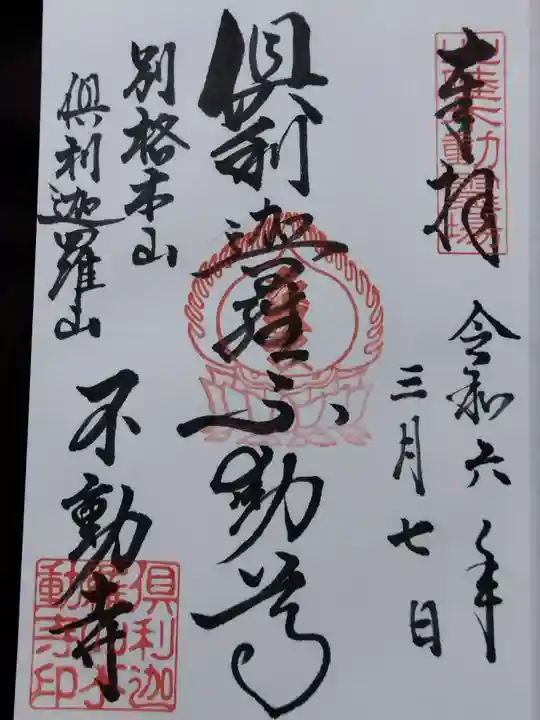 奉拝
令和六年
三月七日
倶利迦羅不動尊
別格本山
倶利迦羅山
不動寺
北陸不動霊場
倶利迦
羅山不
動寺印